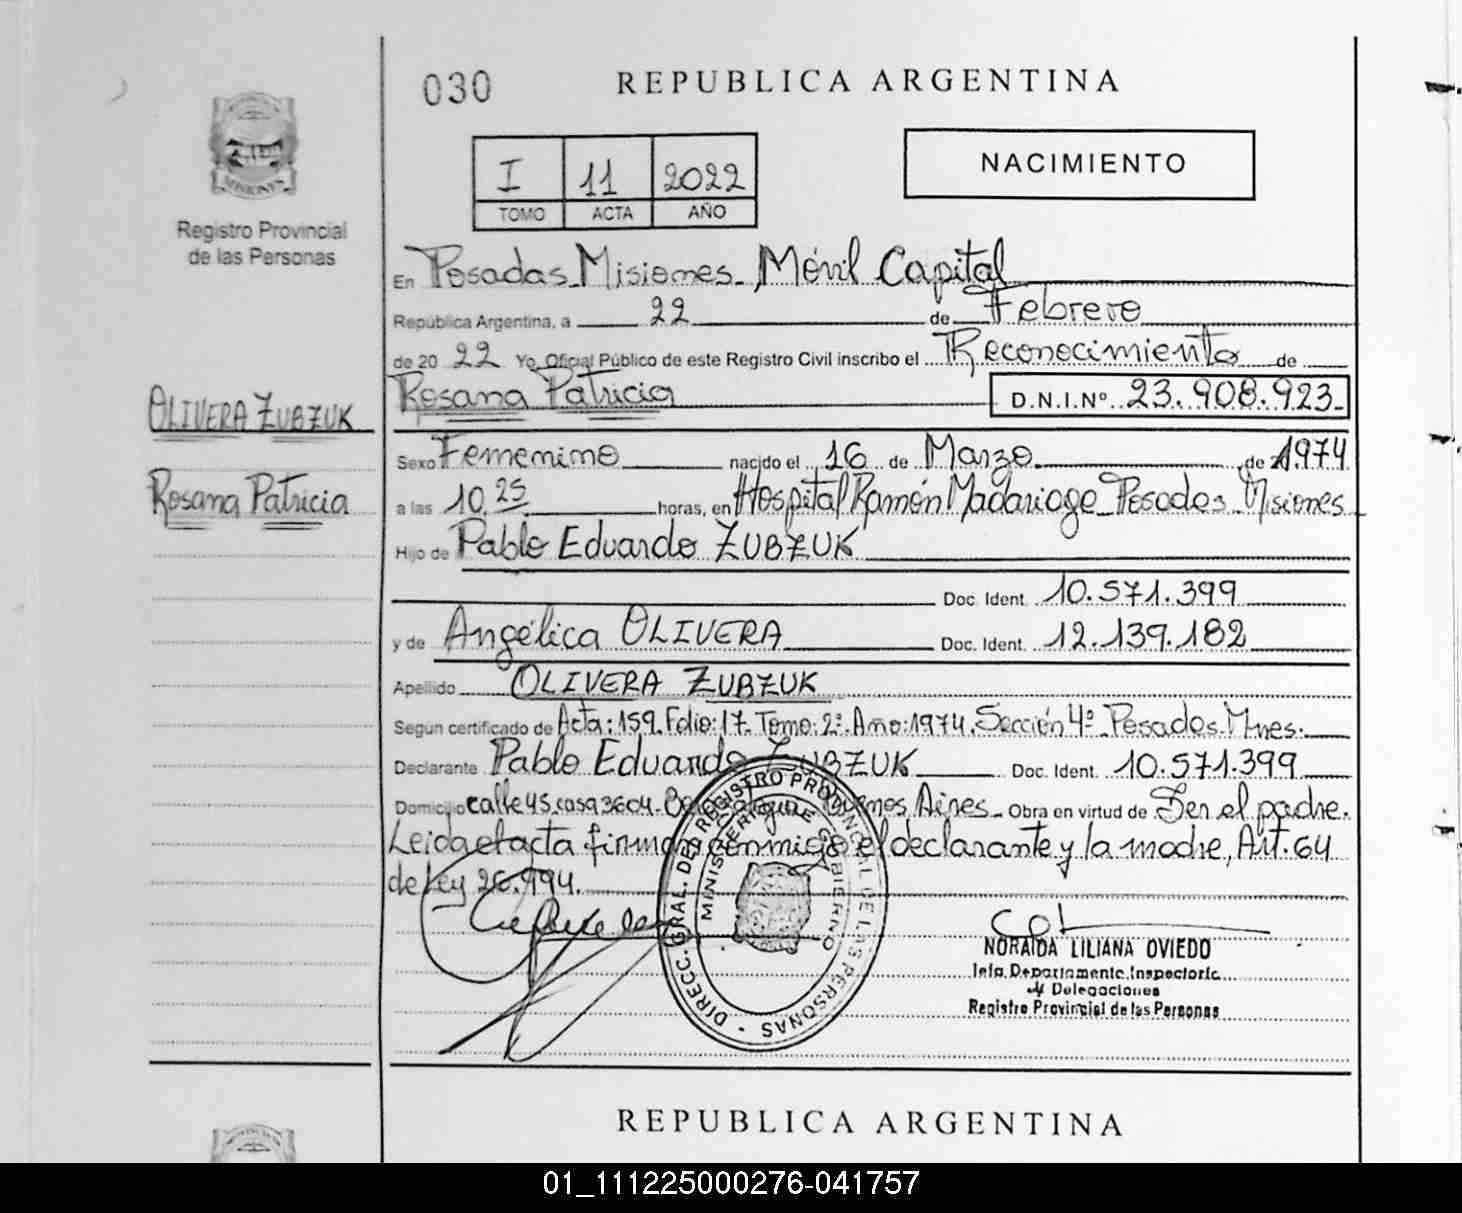 030
REPUBLICA ARGENTINA
I 11 2022
TOMO ACTA AÑO
NACIMIENTO
MISIONES
Registro Provincial
de las Personas
En Posadas Misiones Móvil Capital
República Argentina, a 22 de Febrero
de 20 22 Yo, Oficial Público de este Registro Civil inscribo el Reconocimiento de
Rosana Patricia D.N.I.Nº 23.908.923
OLIVERA ZUBZUK
Rosana Patricia
Sexo Femenino nacido el 16 de Marzo de 1974
a las 10,25 horas, en Hospital Ramón Madariaga Posadas Misiones
Hijo de Pablo Eduardo ZUBZUK
Doc. Ident. 10.571.399
y de Angélica OLIVERA Doc. Ident. 12.139.182
Apellido OLIVERA ZUBZUK
Según certificado de Acta:159. Folio:17. Tomo:2º. Año:1974. Sección 4º Posadas. Mnes.
Declarante Pablo Eduardo ZUBZUK Doc. Ident. 10.571.399
Domicilio calle 45. casa 3604. Buenos Aires Obra en virtud de Ser el padre.
Leida el acta firman conmigo el declarante y la madre, Art. 64
de Ley 26.994.
DIRECC. GRAL. DEL REGISTRO PROVINCIAL DE LAS PERSONAS
MINISTERIO DE GOBIERNO
NORAIDA LILIANA OVIEDO
Jefa. Departamento. Inspectoría
y Delegaciones
Registro Provincial de las Personas
REPUBLICA ARGENTINA
01_111225000276-041757